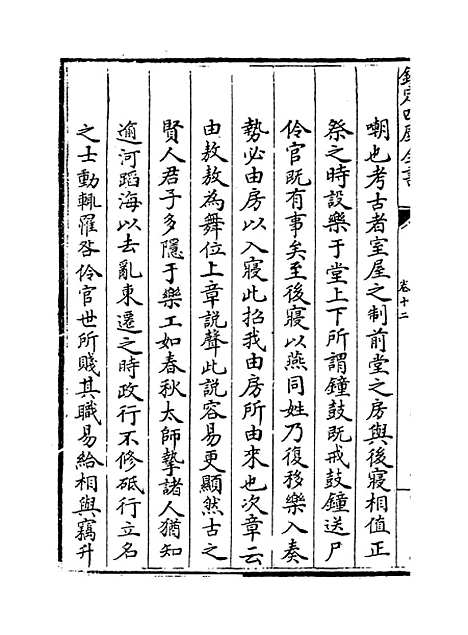 欽定四庫全書
卷十二
嘲也考古者室屋之制前堂之房與後寢相值正
祭之時設樂于堂上下所謂鐘鼓既戒鼓鐘送尸
伶官既有事矣至後寢以燕同姓乃復移樂入奏
勢必由房以入寢此招我由房所由來也次章云
由敖敖為舞位上章說聲此說容易更顯然古之
賢人君子多隱于樂工如春秋太師摯諸人猶知
逾河蹈海以去亂東遷之時政行不修砥行立名
之士動輒罹咎伶官世所賤其職易給相與竊升